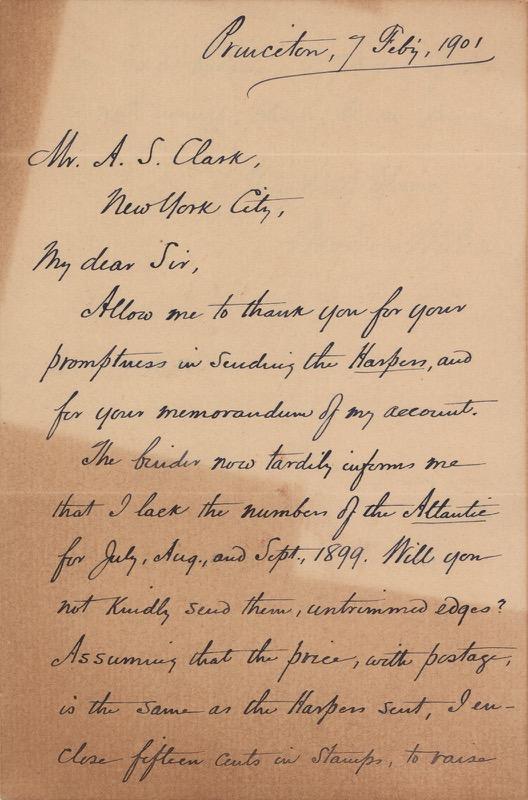 Princeton, 7 Feb'y, 1901
Mr. A. S. Clark,
New York City,
My dear Sir,
Allow me to thank you for your
promptness in sending the Harpers, and
for your memorandum of my account.
The binder now tardily informs me
that I lack the numbers of the Atlantic
for July, Aug., and Sept., 1899. Will you
not kindly send them, untrimmed edges?
Assuming that the price, with postage,
is the same as the Harpers sent, I en-
close fifteen cents in stamps, to raise